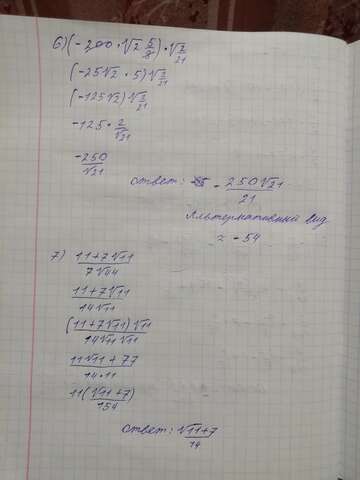 6) (-200 * √2 5/8) * √2/21
(-25√2 * 5) √2/21
(-125√2) √2/21
-125 * 2/√21
-250/√21
ответ: - 250√21/21
Альтернативный вид
≈ -54
7) 11+7√11/7√44
11+7√11/14√11
(11+7√11)√11/14√11√11
11√11+77/14*11
11(√11+7)/154
ответ: √11+7/14